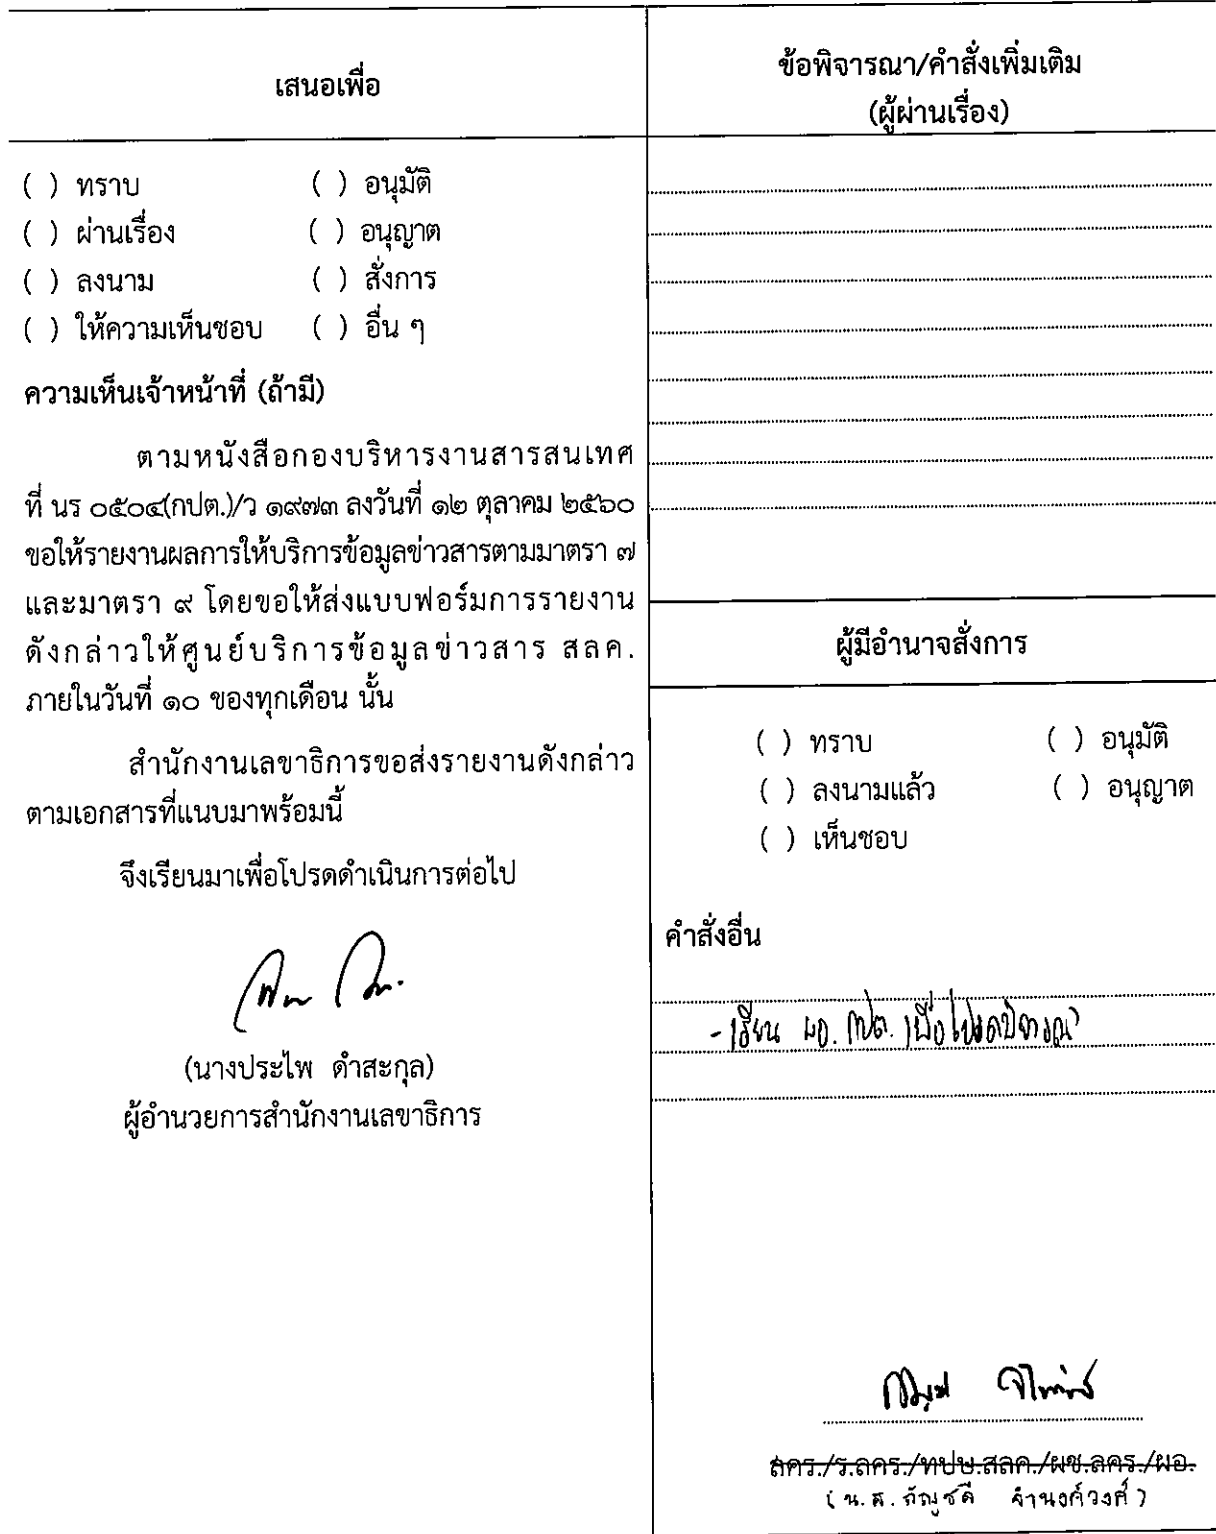 เสนอเพื่อ
( ) ทราบ ( ) อนุมัติ
( ) ผ่านเรื่อง ( ) อนุญาต
( ) ลงนาม ( ) สั่งการ
( ) ให้ความเห็นชอบ ( ) อื่น ๆ
ความเห็นเจ้าหน้าที่ (ถ้ามี)
ตามหนังสือกองบริหารงานสารสนเทศ
ที่ นร ๐๕๐๔(กปต.)/ว ๑๙๗๓ ลงวันที่ ๑๒ ตุลาคม ๒๕๖๐
ขอให้รายงานผลการให้บริการข้อมูลข่าวสารตามมาตรา ๗
และมาตรา ๙ โดยขอให้ส่งแบบฟอร์มการรายงาน
ดังกล่าวให้ศูนย์บริการข้อมูลข่าวสาร สลค.
ภายในวันที่ ๑๐ ของทุกเดือน นั้น
สำนักงานเลขาธิการขอส่งรายงานดังกล่าว
ตามเอกสารที่แนบมาพร้อมนี้
จึงเรียนมาเพื่อโปรดดำเนินการต่อไป
(นางประไพ ดำสะกุล)
ผู้อำนวยการสำนักงานเลขาธิการ
ข้อพิจารณา/คำสั่งเพิ่มเติม
(ผู้ผ่านเรื่อง)
ผู้มีอำนาจสั่งการ
( ) ทราบ ( ) อนุมัติ
( ) ลงนามแล้ว ( ) อนุญาต
( ) เห็นชอบ
คำสั่งอื่น
- เรียน ผอ. กปต. เพื่อโปรดพิจารณา
ลคร./ร.ลคร./ทปษ.สลค./ผช.ลคร./ผอ.
(น.ส.